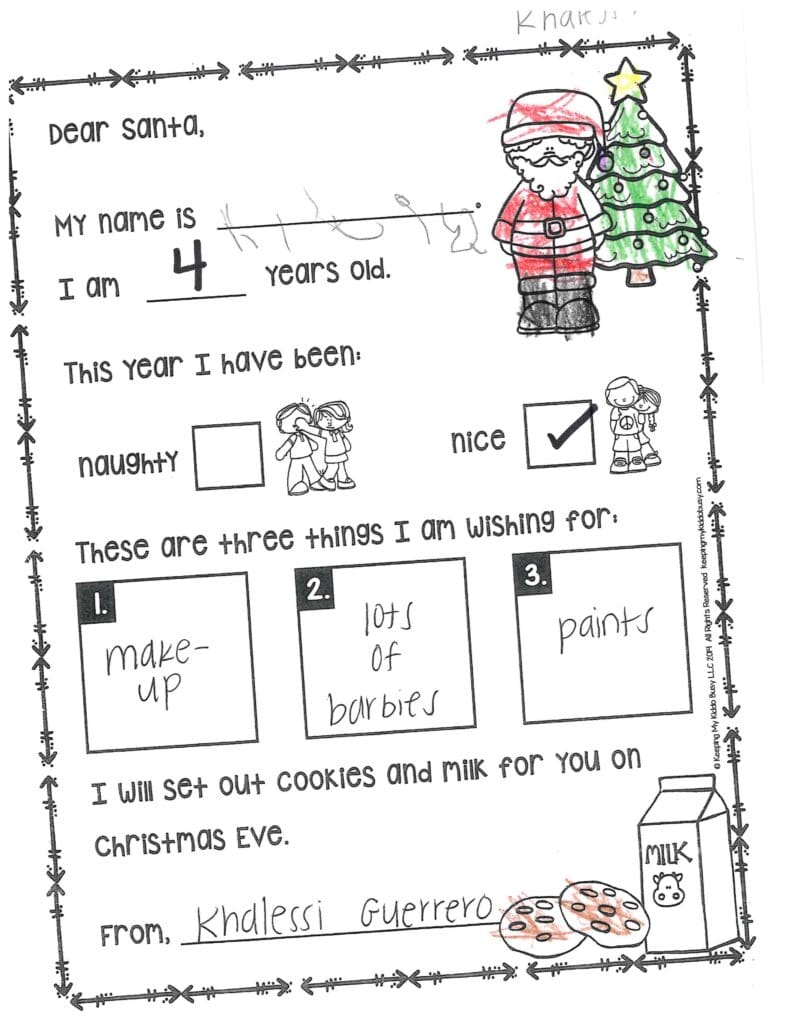 Dear Santa,
My name is
I am 4 years old.
This year I have been:
naughty
nice
These are three things I am wishing for:
1.
make-
up
2.
lots
of
barbies
3.
paints
I will set out cookies and milk for you on
Christmas Eve.
MILK
From, Khalessi Guerrero
© Keeping My Kiddo Busy LLC 2019 All Rights Reserved keepingmykiddobusy.com